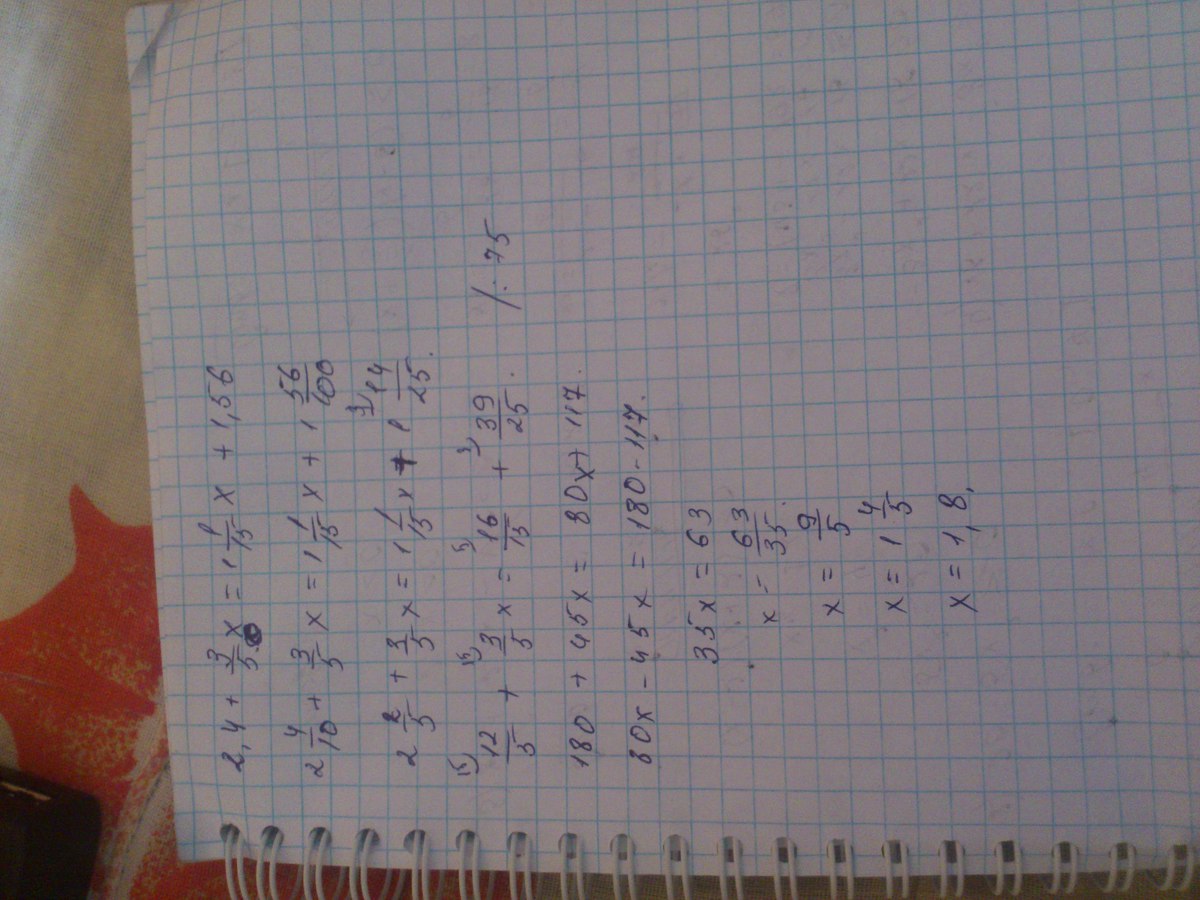 2,4 + 3/5 x = 1 1/15 x + 1,56
2 4/10 + 3/5 x = 1 1/15 x + 1 56/100
2 2/5 + 3/5 x = 1 1/15 x + 1 14/25.
15) 12/5 + 15) 3/5 x = 5) 16/15 + 3) 39/25. /·75
180 + 45x = 80x + 117.
80x - 45x = 180 - 117.
35x = 63
x = 63/35.
x = 9/5
x = 1 4/5
x = 1,8.